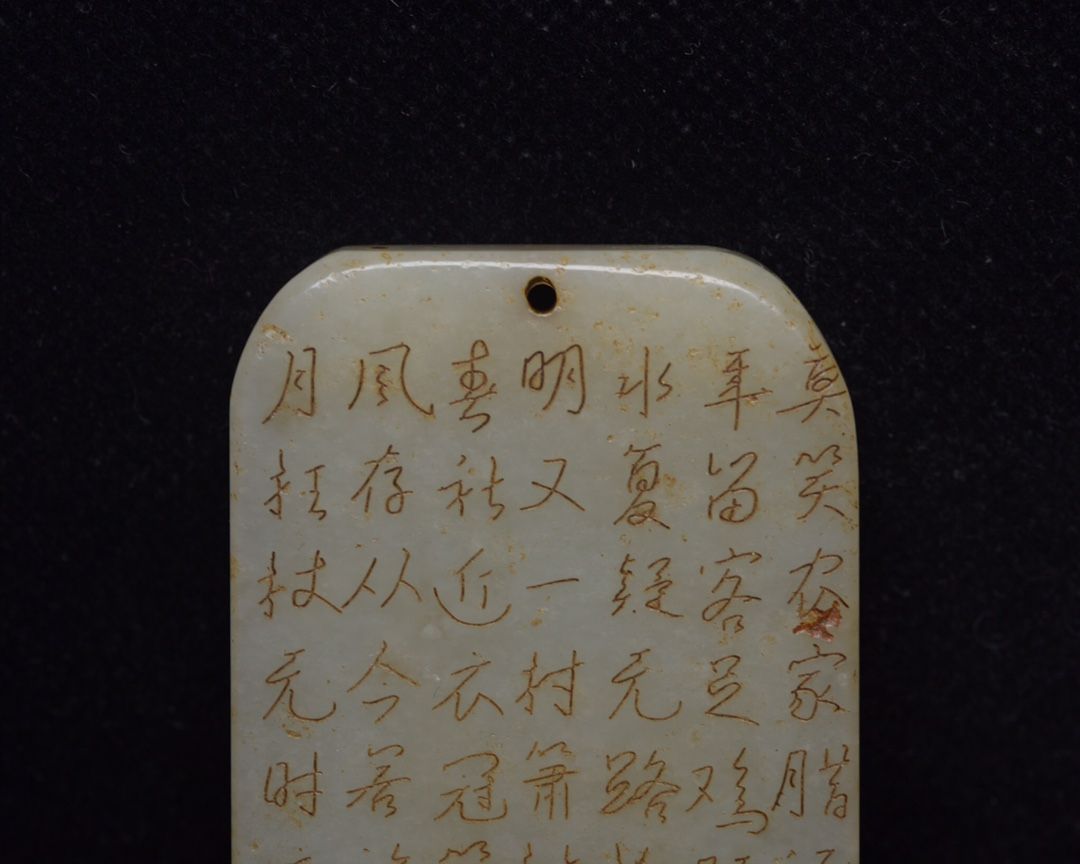 莫笑农家腊
年留客足鸡
水复疑无路
明又一村箫
春社近衣冠
风存从今若
月拄杖无时